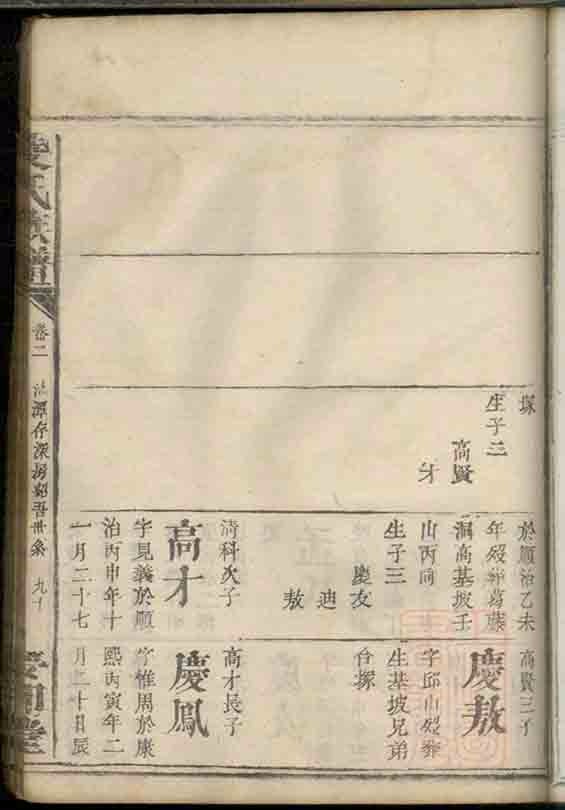 塚
生子二
高賢
才
於順治乙未
年歿葬葛藤
洞高基坡壬
山丙向
生子三
慶友
迪
敖
清科次子
高才
字見義於順
治丙申年十
一月二十七
高賢三子
慶敖
字邱山歿葬
生基坡兄弟
合塚
高才長子
慶鳳
字惟周於康
熙丙寅年二
月二十日辰
氏族譜
卷二
潭存深房紹吾世系
九十